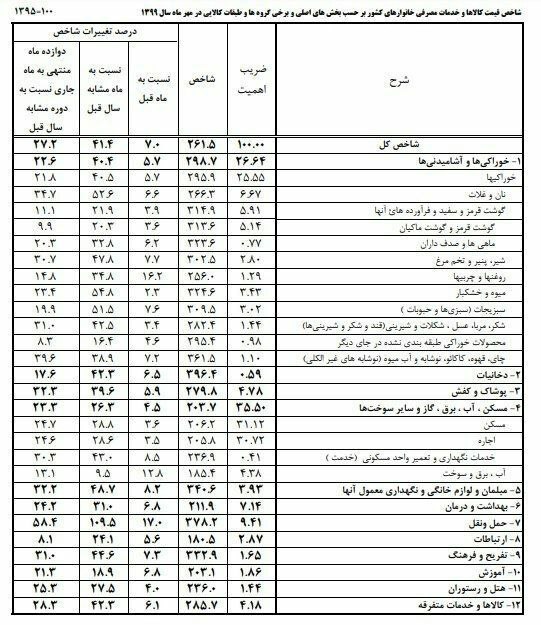 شاخص قیمت کالاها و خدمات مصرفی خانوارهای کشور بر حسب بخش های اصلی و برخی گروه ها و طبقات کالایی در مهر ماه سال ۱۳۹۹
۱۳۹۵=۱۰۰
شرح ضریب اهمیت شاخص درصد تغییرات شاخص
نسبت به ماه قبل نسبت به ماه مشابه سال قبل دوازده ماه منتهی به ماه جاری نسبت به دوره مشابه سال قبل
شاخص کل ۱۰۰.۰۰ ۲۶۱.۵ ۷.۰ ۴۱.۴ ۲۷.۲
۱- خوراکی‌ها و آشامیدنی‌ها ۲۶.۶۴ ۲۹۸.۷ ۵.۷ ۴۰.۴ ۲۲.۶
خوراکیها ۲۵.۵۵ ۲۹۵.۹ ۵.۷ ۴۰.۵ ۲۱.۸
نان و غلات ۶.۶۷ ۲۶۶.۳ ۶.۶ ۵۲.۶ ۳۴.۷
گوشت قرمز و سفید و فرآورده های آنها ۵.۹۱ ۳۱۴.۹ ۳.۹ ۲۱.۹ ۱۱.۱
گوشت قرمز و گوشت ماکیان ۵.۱۴ ۳۱۳.۶ ۳.۶ ۲۰.۳ ۹.۹
ماهی ها و صدف داران ۰.۷۷ ۳۲۳.۶ ۶.۲ ۳۲.۸ ۲۰.۳
شیر، پنیر و تخم مرغ ۲.۸۰ ۳۰۲.۵ ۷.۷ ۴۷.۸ ۳۰.۷
روغنها و چربیها ۱.۲۹ ۲۵۶.۰ ۱۶.۲ ۳۴.۸ ۱۴.۸
میوه و خشکبار ۳.۴۳ ۳۲۴.۶ ۲.۳ ۵۴.۸ ۲۳.۴
سبزیجات (سبزی‌ها و حبوبات ) ۳.۰۲ ۳۰۹.۵ ۷.۶ ۵۱.۵ ۱۹.۹
شکر، مربا، عسل ، شکلات و شیرینی(قند و شکر و شیرینی‌ها) ۱.۴۴ ۲۸۲.۴ ۳.۴ ۴۲.۵ ۳۱.۰
محصولات خوراکی طبقه بندی نشده در جای دیگر ۰.۹۸ ۲۹۵.۴ ۴.۶ ۱۶.۴ ۸.۳
چای، قهوه، کاکائو، نوشابه و آب میوه (نوشابه های غیر الکلی) ۱.۱۰ ۳۶۱.۵ ۷.۲ ۳۸.۹ ۳۹.۶
۲- دخانیات ۰.۵۹ ۳۹۶.۴ ۶.۵ ۴۲.۳ ۱۷.۶
۳- پوشاک و کفش ۴.۷۸ ۲۷۹.۸ ۵.۹ ۳۹.۶ ۳۲.۳
۴- مسکن ، آب ، برق ، گاز و سایر سوخت‌ها ۳۵.۵۰ ۲۰۳.۷ ۴.۵ ۲۶.۳ ۲۳.۳
مسکن ۳۱.۱۲ ۲۰۶.۲ ۳.۶ ۲۸.۸ ۲۴.۷
اجاره ۳۰.۷۲ ۲۰۵.۸ ۳.۵ ۲۸.۶ ۲۴.۶
خدمات نگهداری و تعمیر واحد مسکونی (خدمت ) ۰.۴۱ ۲۳۶.۹ ۸.۵ ۴۳.۰ ۳۰.۳
آب ، برق و سوخت ۴.۳۸ ۱۸۵.۴ ۱۲.۸ ۹.۵ ۱۳.۱
۵- مبلمان و لوازم خانگی و نگهداری معمول آنها ۳.۹۳ ۳۴۰.۶ ۸.۲ ۴۸.۷ ۳۲.۲
۶- بهداشت و درمان ۷.۱۴ ۲۱۱.۹ ۶.۸ ۳۱.۰ ۲۴.۲
۷- حمل ونقل ۹.۴۱ ۳۷۸.۲ ۱۷.۰ ۱۰۹.۵ ۵۸.۴
۸- ارتباطات ۲.۸۷ ۱۸۰.۵ ۵.۶ ۲۴.۱ ۸.۱
۹- تفریح و فرهنگ ۱.۶۵ ۳۳۲.۹ ۷.۳ ۴۴.۶ ۳۱.۰
۱۰- آموزش ۱.۸۶ ۲۰۳.۱ ۶.۸ ۱۸.۹ ۲۱.۳
۱۱- هتل و رستوران ۱.۴۴ ۲۳۶.۰ ۴.۰ ۲۷.۵ ۲۵.۳
۱۲- کالاها و خدمات متفرقه ۴.۱۸ ۲۸۵.۷ ۶.۱ ۴۲.۳ ۲۸.۳